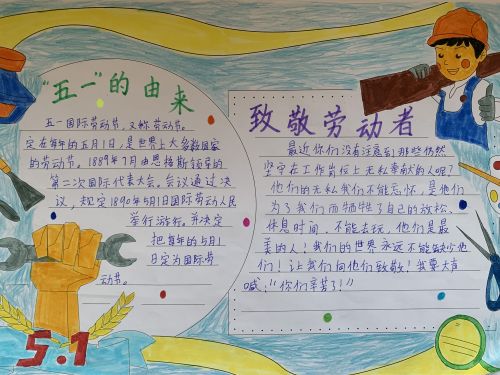 “五一”的由来
五一国际劳动节，又称劳动节。
定在每年的五月1日，是世界上大多数国家
的劳动节。1889年7月由恩格斯领导的
第二次国际代表大会。会议通过决
议，规定1890年5月1日国际劳动人民
举行游行。并决定
把每年的5月1
日定为国际劳
动节。
5.1
致敬劳动者
最近你们没有注意到那些仍然
坚守在工作岗位上无私奉献的人呢？
他们的无私我们不能忘怀，是他们
为了我们而牺牲了自己的放松、
休息时间，不能去玩，他们是最
美的人！我们的世界永远不能缺少他
们！让我们向他们致敬！我要大声
喊：“你们辛苦了！”